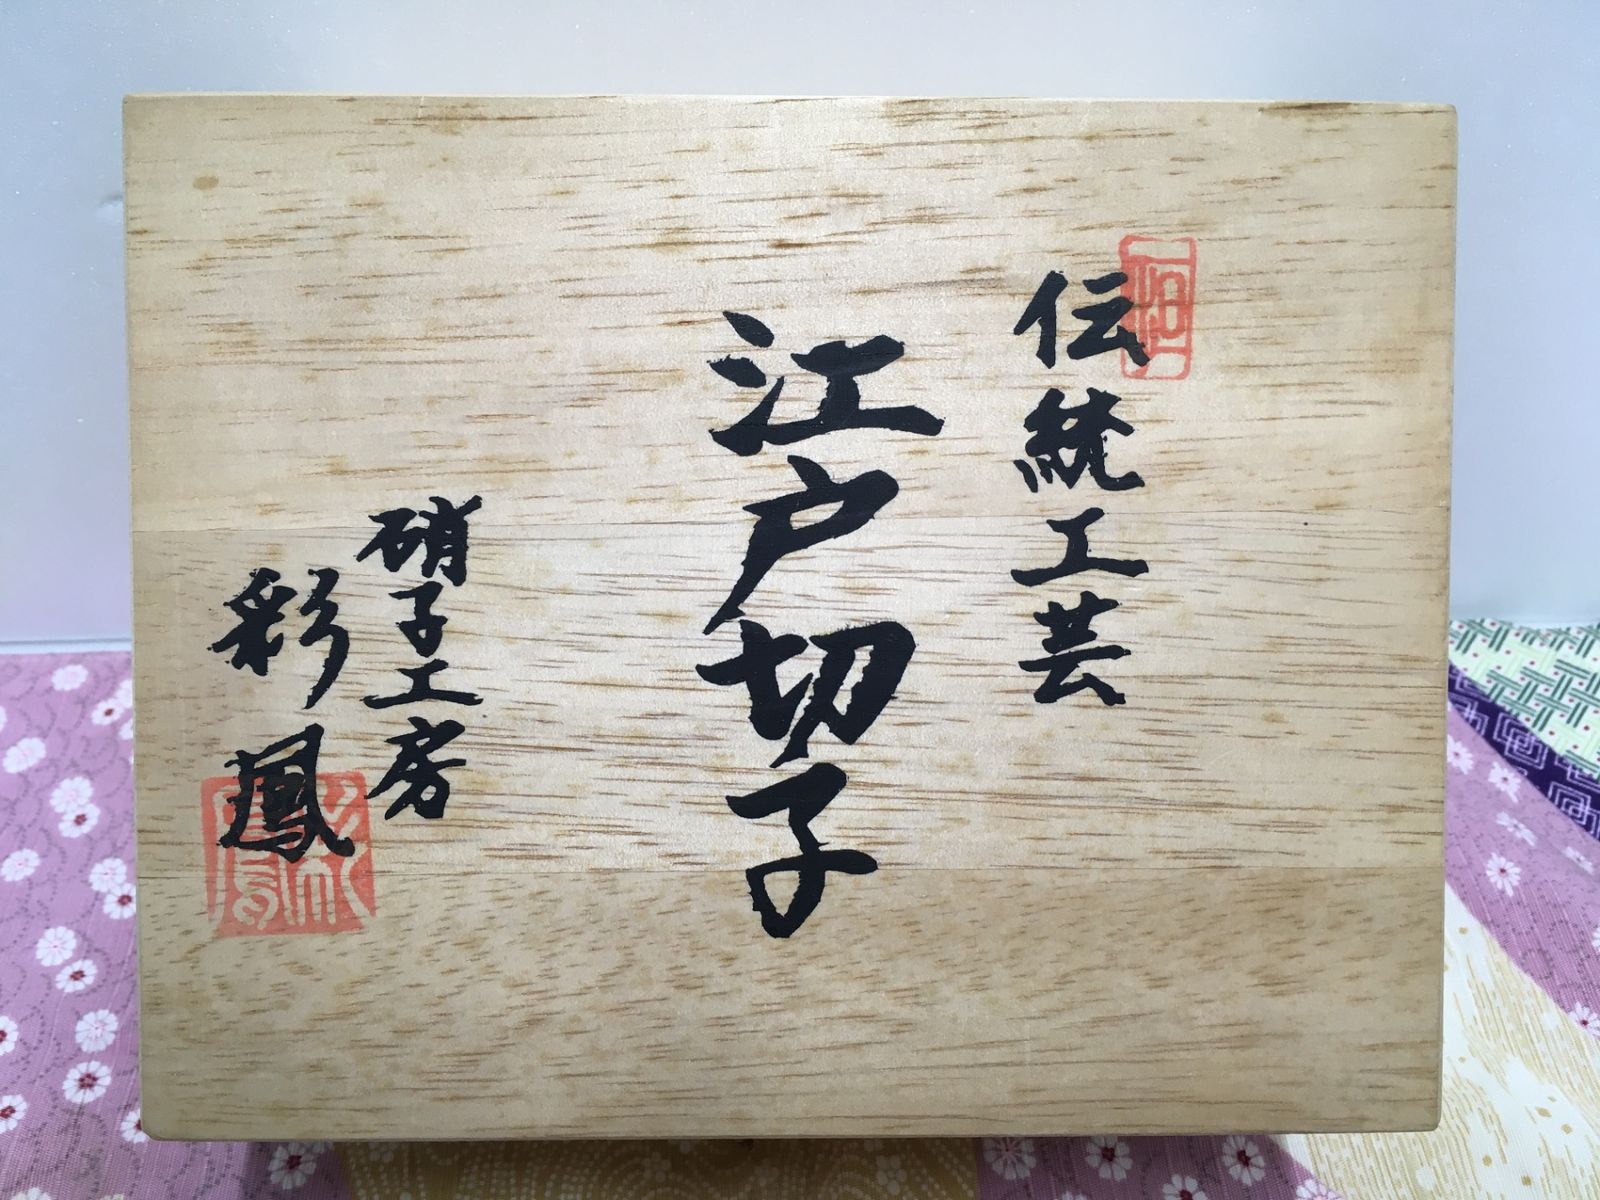 伝統工芸
江戸切子
硝子工房
彩鳳